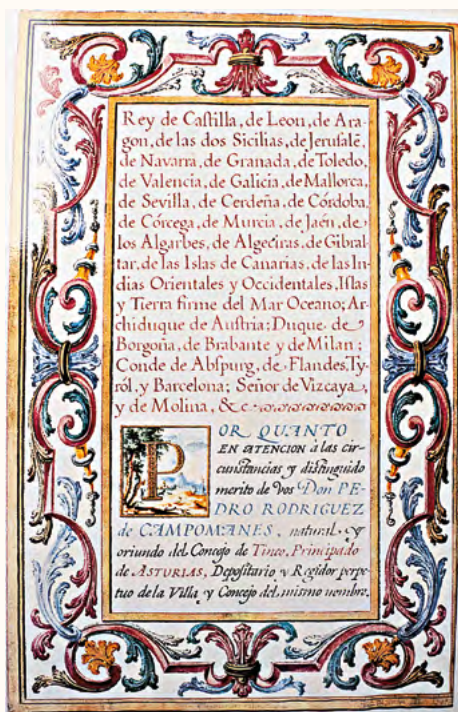 Rey de Caſtilla, de Leon, de Ara-
gon, de las dos Sicilias, de Jeruſalẽ,
de Navarra, de Granada, de Toledo,
de Valencia, de Galicia, de Mallorca,
de Sevilla, de Cerdeña, de Córdoba,
de Córcega, de Murcia, de Jaén, de
los Algarbes, de Algeciras, de Gibral-
tar, de las Islas de Canarias, de las In-
dias Orientales y Occidentales, Iſlas
y Tierra firme del Mar Oceano; Ar-
chiduque de Auſtria; Duque de
Borgoña, de Brabante y de Milan;
Conde de Abſpurg, de Flandes, Ty-
ról, y Barcelona; Señor de Vizcaya,
y de Molina, &c
POR QUANTO
EN ATENCION á las cir-
cunſtancias y diſtinguido
merito de Vos Don PE-
DRO RODRIGUEZ
de CAMPOMANES, natural, y
oriundo del Concejo de Tineo, Principado
de ASTURIAS, Depoſitario y Regidor perpe-
tuo de la Villa y Concejo del mismo nombre.